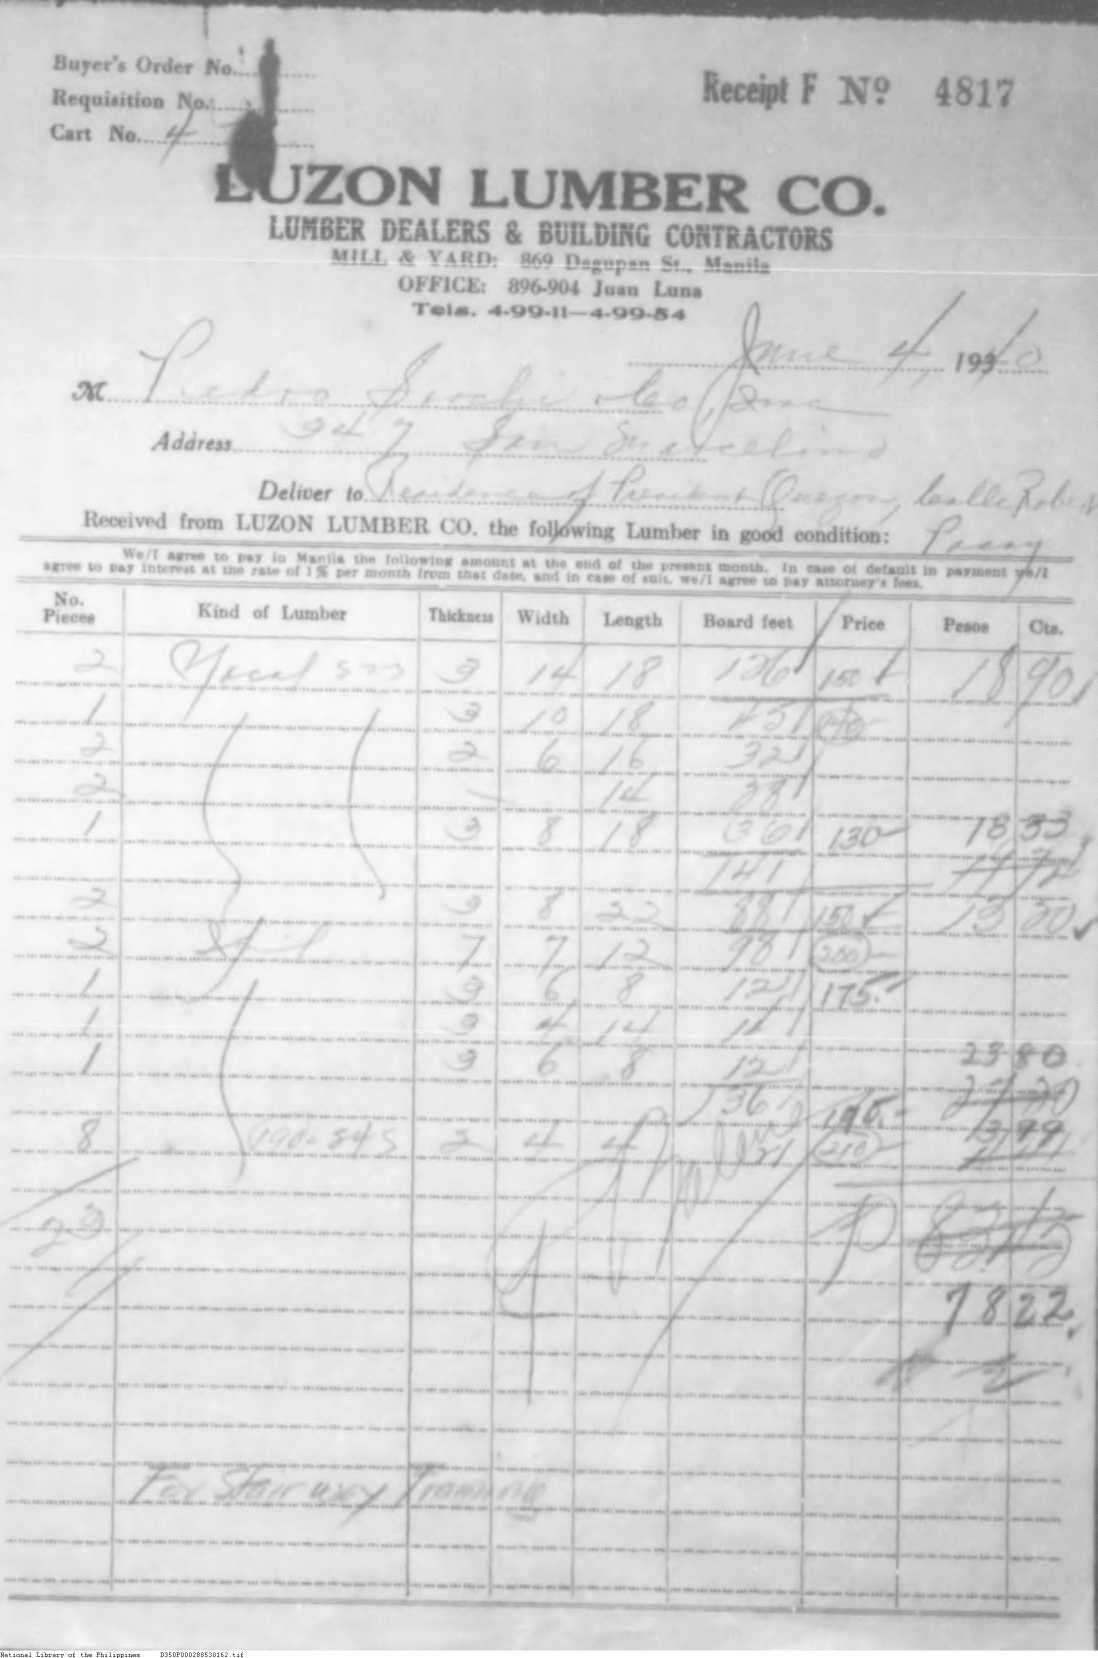 Buyer's Order No.
Requisition No.
Cart No. 4
Receipt F Nº 4817
LUZON LUMBER CO.
LUMBER DEALERS & BUILDING CONTRACTORS
MILL & YARD: 869 Dagupan St., Manila
OFFICE: 896-904 Juan Luna
Tels. 4-99-11—4-99-54
June 4, 1940
M Pedro Siochi & Co, Inc
Address 247 San Marcelino
Deliver to Residence of President Quezon, Calle Roberts
Pasay
Received from LUZON LUMBER CO. the following Lumber in good condition:
We/I agree to pay in Manila the following amount at the end of the present month. In case of default in payment we/I
agree to pay interest at the rate of 1% per month from that date, and in case of suit, we/I agree to pay attorney's fees.
No. Pieces Kind of Lumber Thickness Width Length Board feet Price Pesos Cts.
2 Yacal 3 14 18 126 150 18 90
1 3 10 18 45
2 2 6 16 32
2 14 28
1 3 8 18 36 130 18 33
141
2 3 8 22 88 150 13 20
2 7 7 12 98 200
1 3 6 8 12 175
1 3 4 14 14
1 3 6 8 12 23 80
136
8 2 4 4 21 210 3 99
23
78 22
For Stairway Framing
National Library of the Philippines D350P000288530162.tif